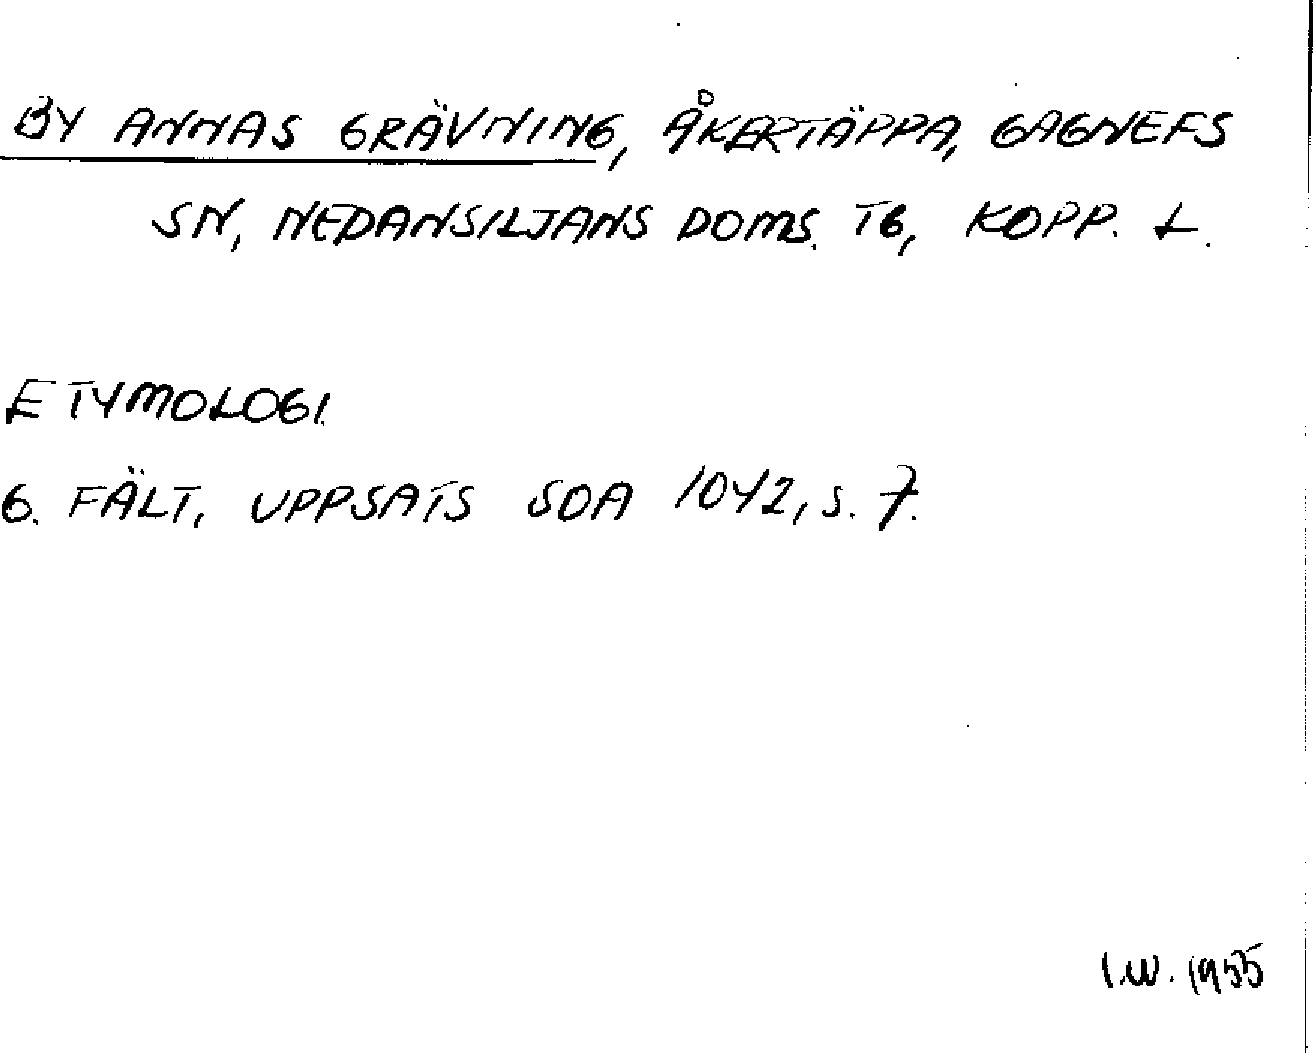 BY ANNAS GRÄVNING, ÅKERTÄPPA, GAGNEFS
SN, NEDANSILJANS DOMS. TG, KOPP. L.
ETYMOLOGI.
G. FÄLT, UPPSATS SOA 1042, S. 7.
I.W. 1955